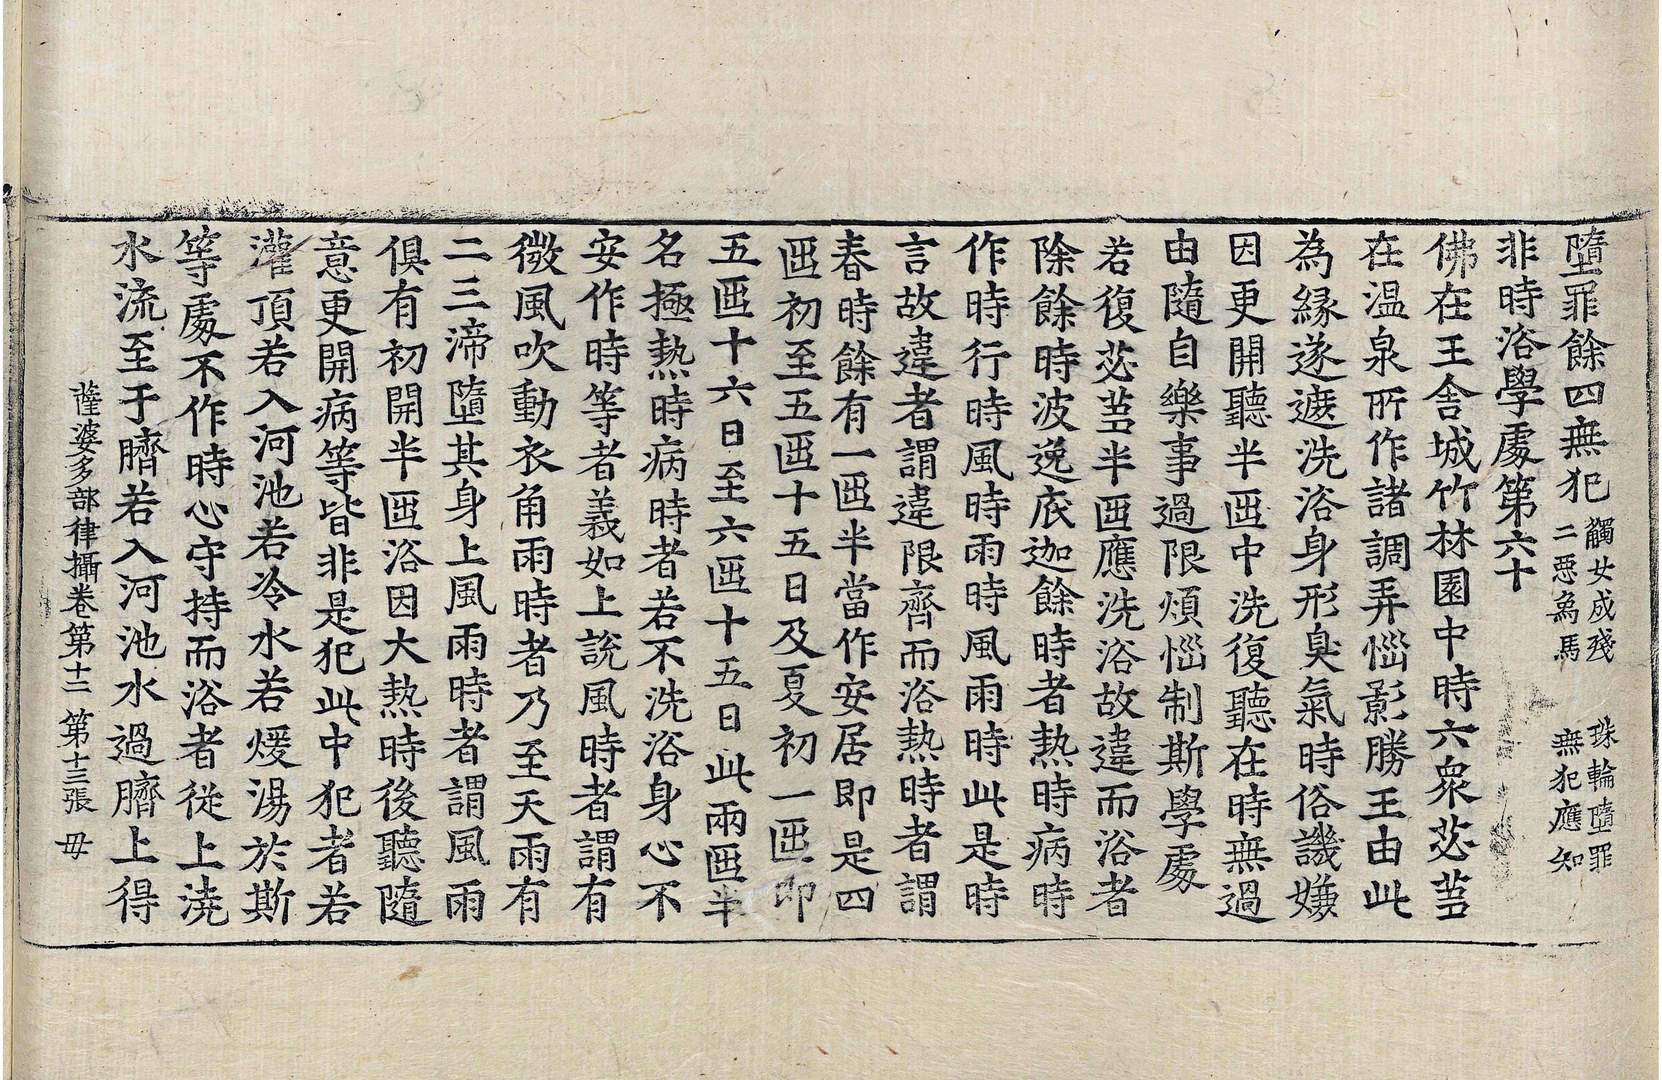 墮罪餘四無犯 觸女成殘 二惡為馬 珠輪墮罪 無犯應知
非時浴學處第六十
佛在王舍城竹林園中時六衆苾芻
在温泉所作諸調弄惱影勝王由此
為縁遂遮洗浴身形臭氣時俗譏嫌
因更開聽半𠥱中洗復聽在時無過
由隨自樂事過限煩惱制斯學處
若復苾芻半𠥱應洗浴故違而浴者
除餘時波逸底迦餘時者熱時病時
作時行時風時雨時風雨時此是時
言故違者謂違限齊而浴熱時者謂
春時餘有一𠥱半當作安居即是四
𠥱初至五𠥱十五日及夏初一𠥱即
五𠥱十六日至六𠥱十五日此兩𠥱半
名極熱時病時者若不洗浴身心不
安作時等者義如上說風時者謂有
微風吹動衣角雨時者乃至天雨有
二三渧墮其身上風雨時者謂風雨
俱有初開半𠥱浴因大熱時後聽隨
意更開病等皆非是犯此中犯者若
灌頂若入河池若冷水若煖湯於斯
等處不作時心守持而浴者從上澆
水流至于臍若入河池水過臍上得
薩婆多部律攝卷第十二 第十三張 毋